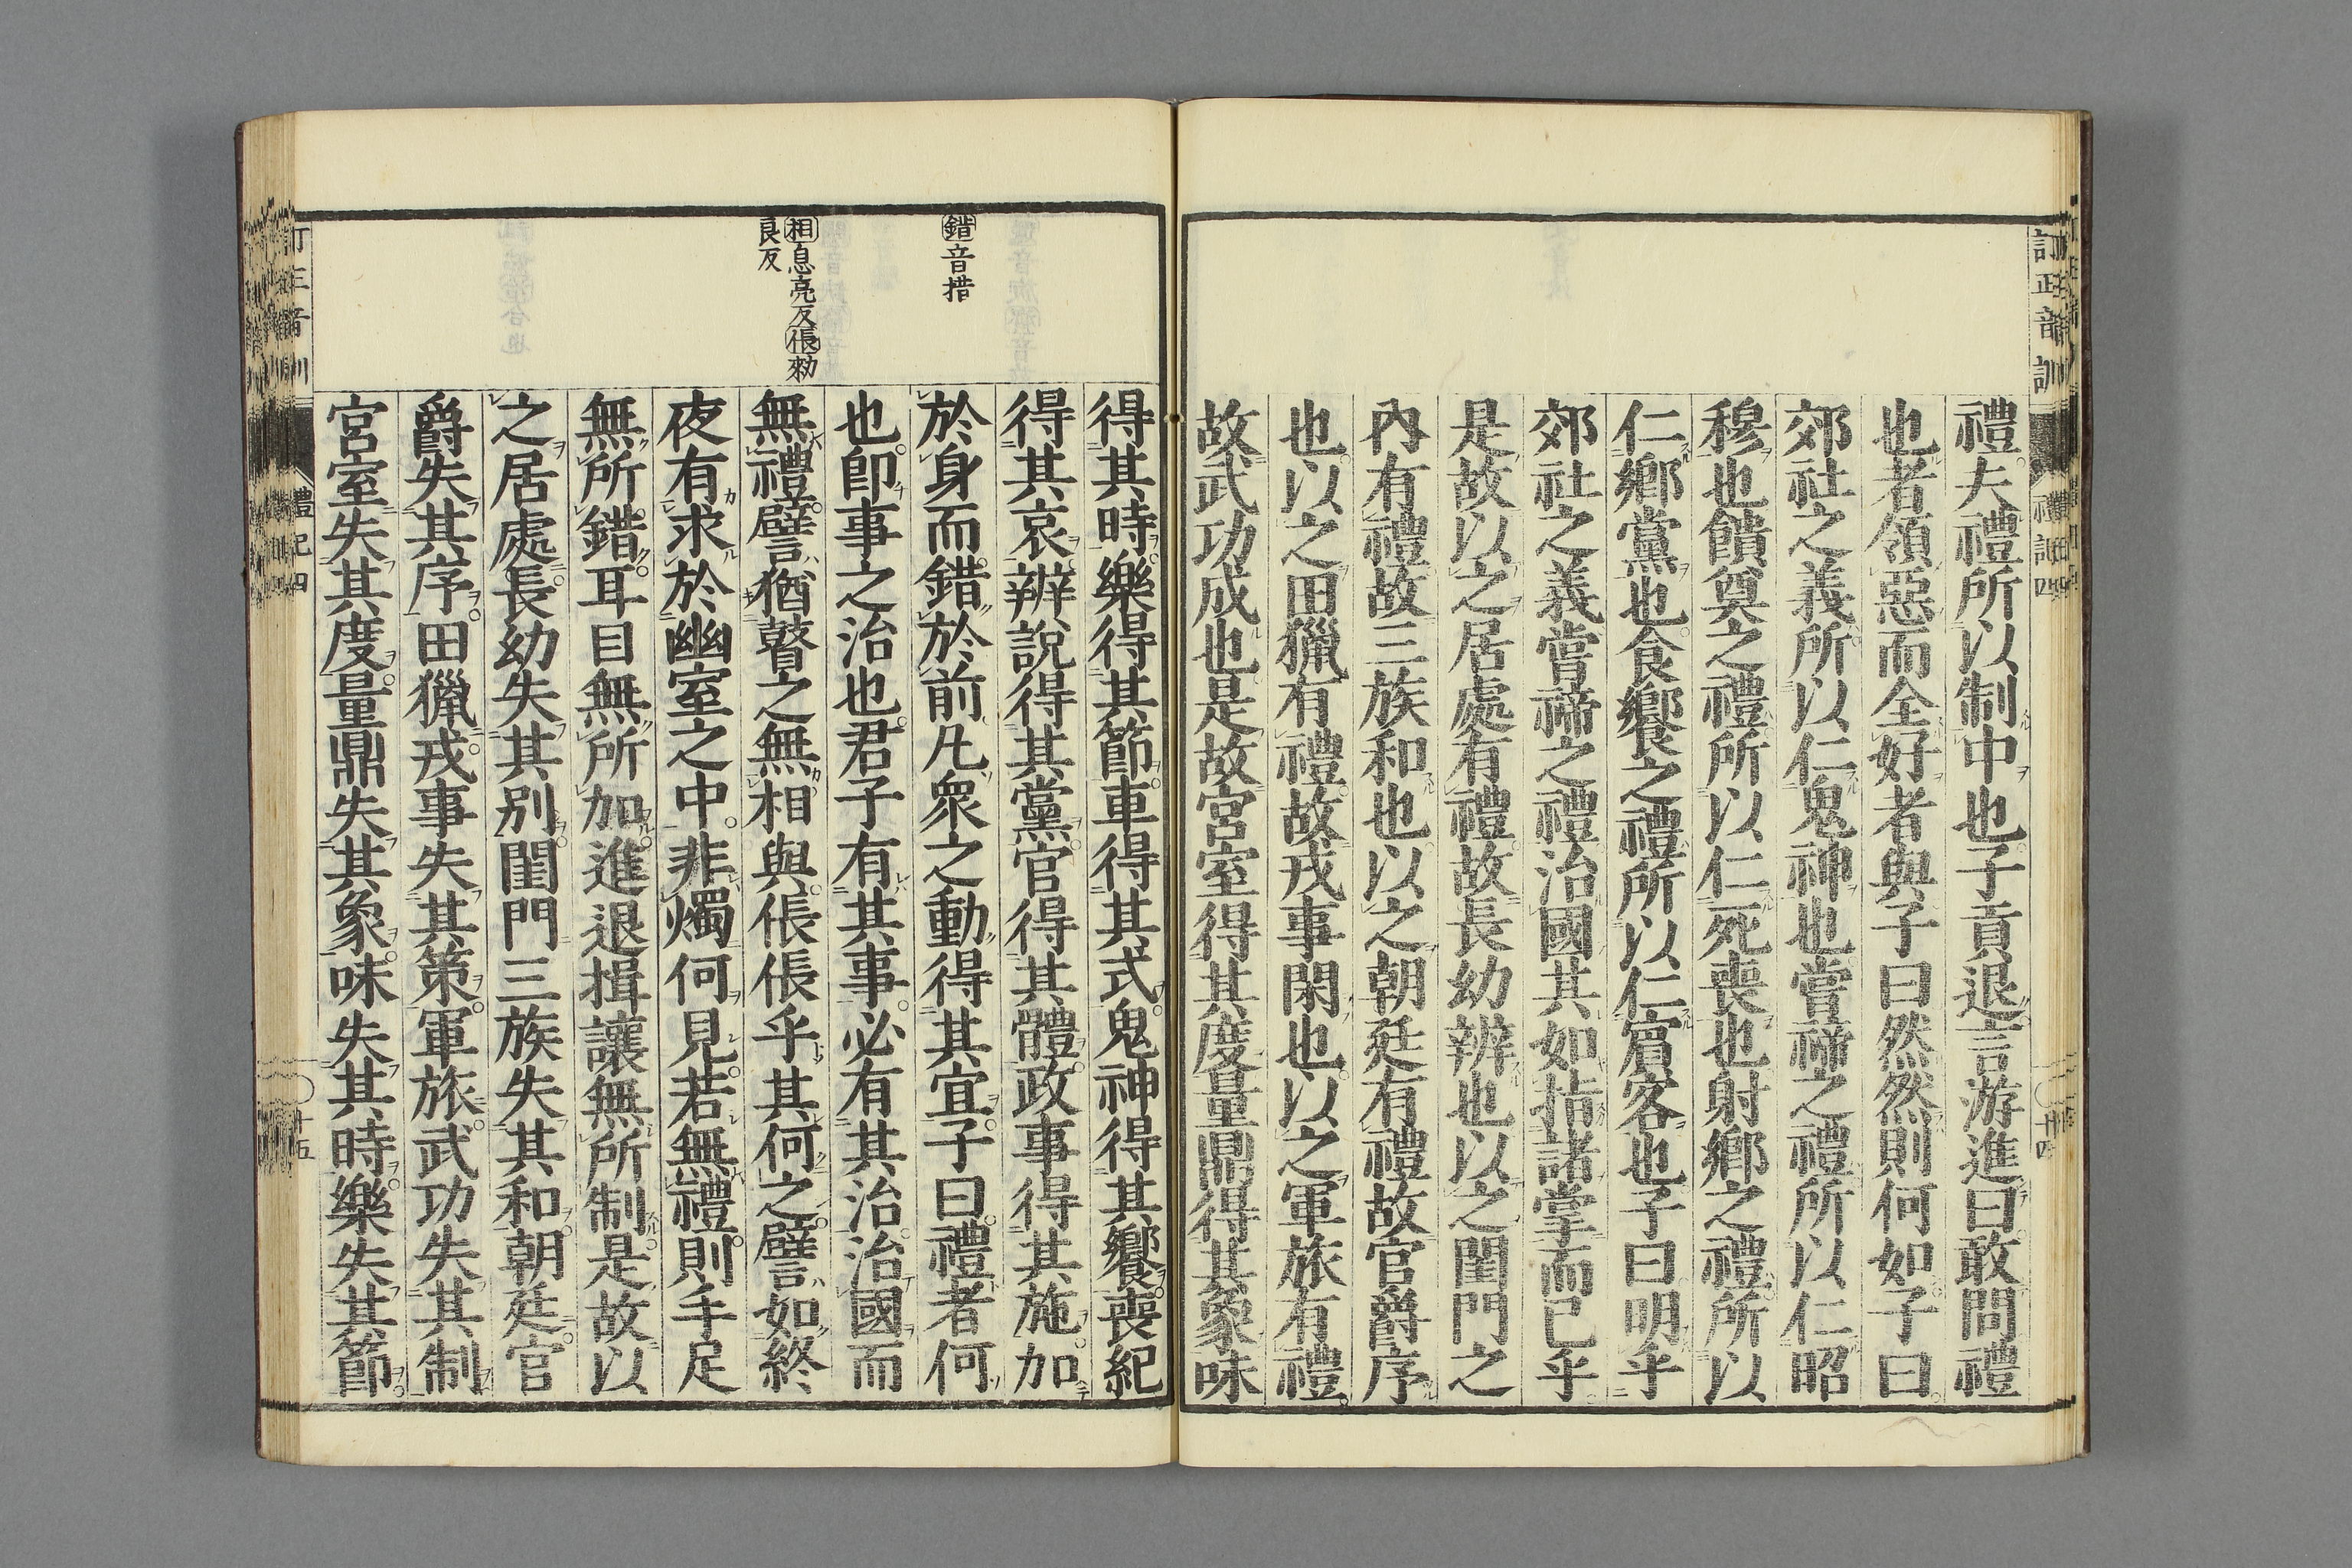 訂正音訓
禮記四
廿四
禮夫禮所以制中也子貢退言游進曰敢問禮
也者領惡而全好者與子曰然然則何如子曰
郊社之義所以仁鬼神也嘗禘之禮所以仁昭
穆也饋奠之禮所以仁死喪也射鄉之禮所以
仁鄉黨也食饗之禮所以仁賓客也子曰明乎
郊社之義嘗禘之禮治國其如指諸掌而已乎
是故以之居處有禮故長幼辨也以之閨門之
內有禮故三族和也以之朝廷有禮故官爵序
也以之田獵有禮故戎事閑也以之軍旅有禮
故武功成也是故宮室得其度量鼎得其象味
得其時樂得其節車得其式鬼神得其饗喪紀
得其哀辨說得其黨官得其體政事得其施加
錯音措
於身而錯於前凡衆之動得其宜子曰禮者何
也卽事之治也君子有其事必有其治治國而
相息亮反倀勑
良反
無禮譬猶瞽之無相與倀倀乎其何之譬如終
夜有求於幽室之中非燭何見若無禮則手足
無所錯耳目無所加進退揖讓無所制是故以
之居處長幼失其別閨門三族失其和朝廷官
爵失其序田獵戎事失其策軍旅武功失其制
宮室失其度量鼎失其象味失其時樂失其節
訂正音訓
禮記四
十五